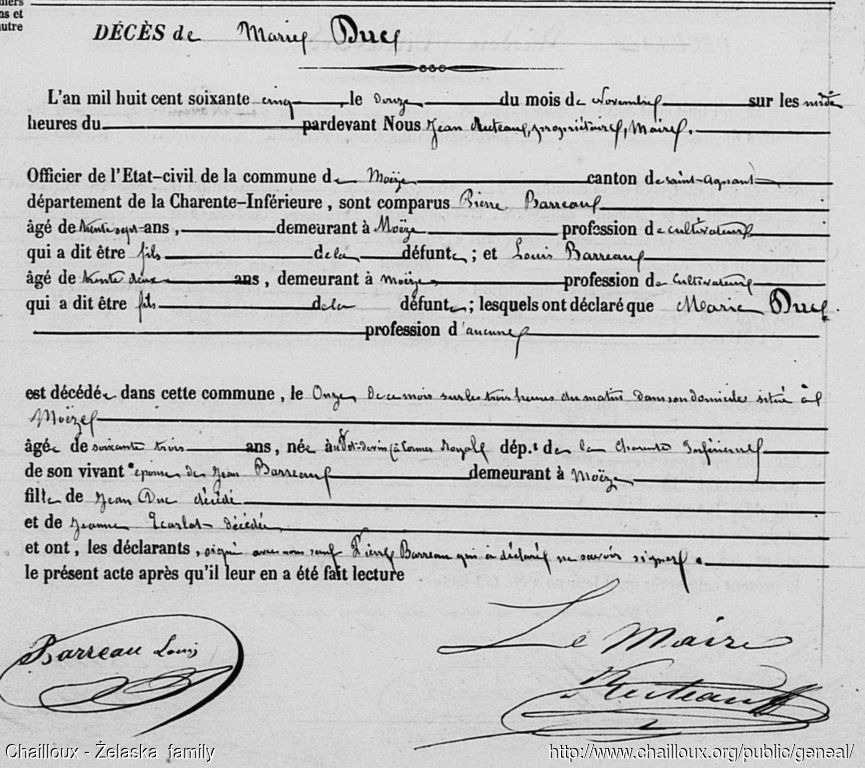 niers
ns et
utre
DÉCÈS de Marie Duc
L'an mil huit cent soixante cinq, le douze du mois de Novembre sur les midi
heures du pardevant Nous Jean Ruteau, propriétaire, Maire.
Officier de l'Etat-civil de la commune de Moëze canton de saint-agnant
département de la Charente-Inférieure, sont comparus Pierre Barreau
âgé de trente sept ans, demeurant à Moëze profession de cultivateur
qui a dit être fils de la défunte; et Louis Barreau
âgé de trente deux ans, demeurant à moëze profession de Cultivateur
qui a dit être fils de la défunte; lesquels ont déclaré que Marie Duc
profession d'aucune
est décédée dans cette commune, le Onze de ce mois sur les trois heures du matin dans son domicile situé à
Moëze
âgée de soixante trois ans, née à (à Cormes Royal dép.t de la Charente Inférieure
de son vivant épouse de Jean Barreau demeurant à Moëze
fille de Jean Duc décédé
et de Jeanne Ecarlat décédée
et ont, les déclarants, signé avec nous sauf Pierre Barreau qui a déclaré ne savoir signer.
le présent acte après qu'il leur en a été fait lecture
Barreau Louis
Le Maire
Ruteau
Chailloux - Żelaska family
http://www.chailloux.org/public/geneal/